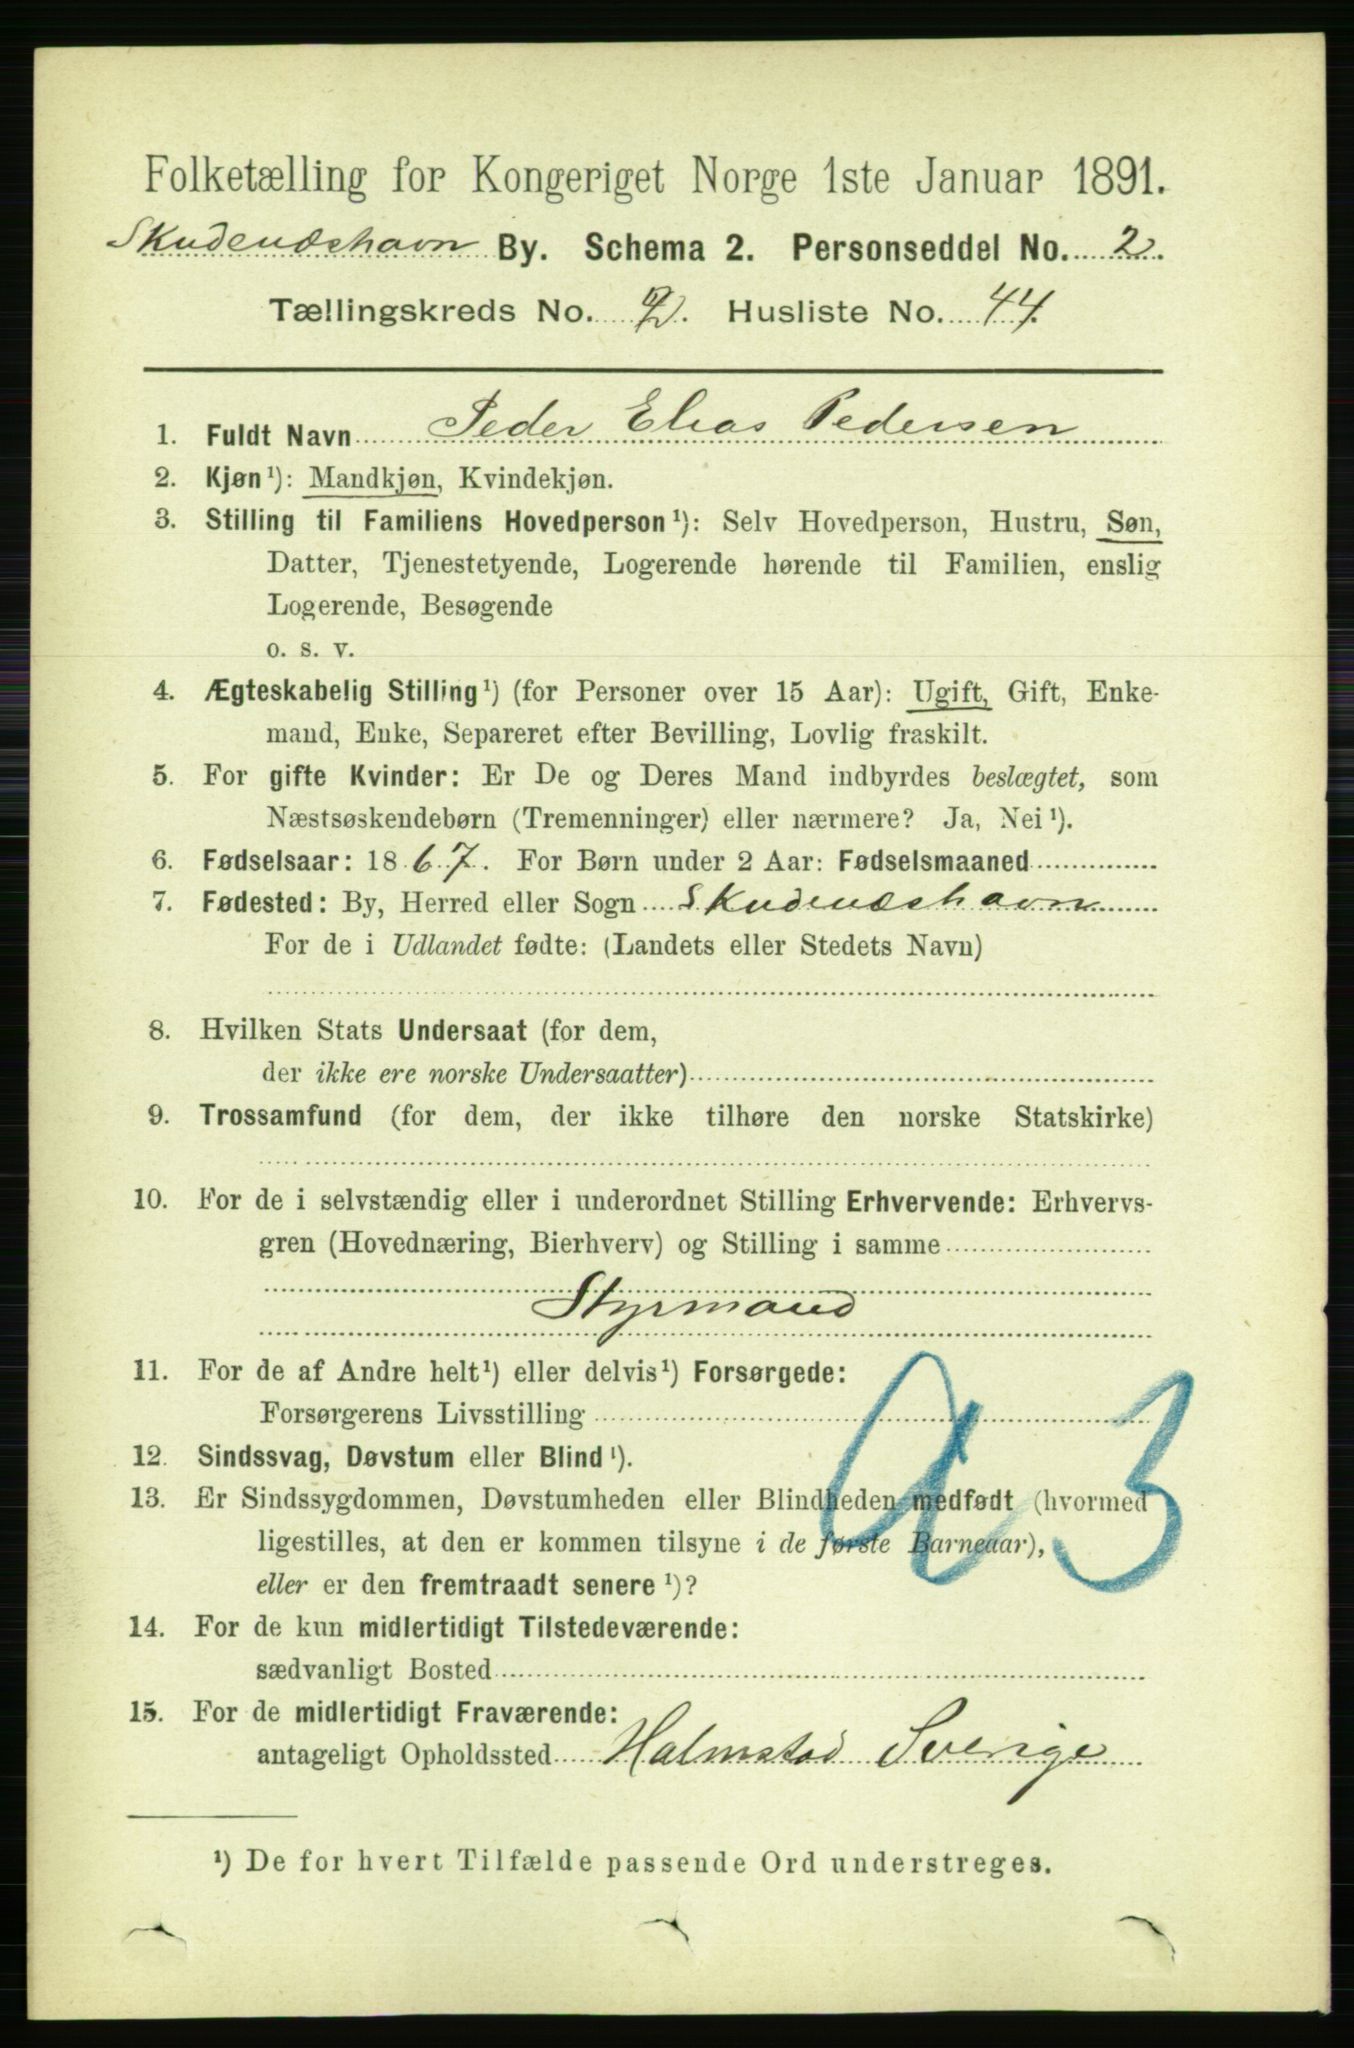 Folketælling for Kongeriget Norge 1ste Januar 1891.
Skudenæshavn By. Schema 2. Personseddel No. 2.
Tællingskreds No. 2. Husliste No. 44.
1. Fuldt Navn Peder Elias Pedersen
2. Kjøn ¹): Mandkjøn, Kvindekjøn.
3. Stilling til Familiens Hovedperson ¹): Selv Hovedperson, Hustru, Søn,
Datter, Tjenestetyende, Logerende hørende til Familien, enslig
Logerende, Besøgende
o. s. v.
4. Ægteskabelig Stilling ¹) (for Personer over 15 Aar): Ugift, Gift, Enke-
mand, Enke, Separeret efter Bevilling, Lovlig fraskilt.
5. For gifte Kvinder: Er De og Deres Mand indbyrdes beslægtet, som
Næstsøskendebørn (Tremenninger) eller nærmere? Ja, Nei ¹).
6. Fødselsaar: 1867. For Børn under 2 Aar: Fødselsmaaned
7. Fødested: By, Herred eller Sogn Skudenæshavn
For de i Udlandet fødte: (Landets eller Stedets Navn)
8. Hvilken Stats Undersaat (for dem,
der ikke ere norske Undersaatter)
9. Trossamfund (for dem, der ikke tilhøre den norske Statskirke)
10. For de i selvstændig eller i underordnet Stilling Erhvervende: Erhvervs-
gren (Hovednæring, Bierhverv) og Stilling i samme
Styrmand
11. For de af Andre helt ¹) eller delvis ¹) Forsørgede:
Forsørgerens Livsstilling
12. Sindssvag, Døvstum eller Blind ¹).
13. Er Sindssygdommen, Døvstumheden eller Blindheden medfødt (hvormed
ligestilles, at den er kommen tilsyne i de første Barneaar),
eller er den fremtraadt senere ¹)?
a 3
14. For de kun midlertidigt Tilstedeværende:
sædvanligt Bosted
15. For de midlertidigt Fraværende:
antageligt Opholdssted Halmstad Sverige
¹) De for hvert Tilfælde passende Ord understreges.